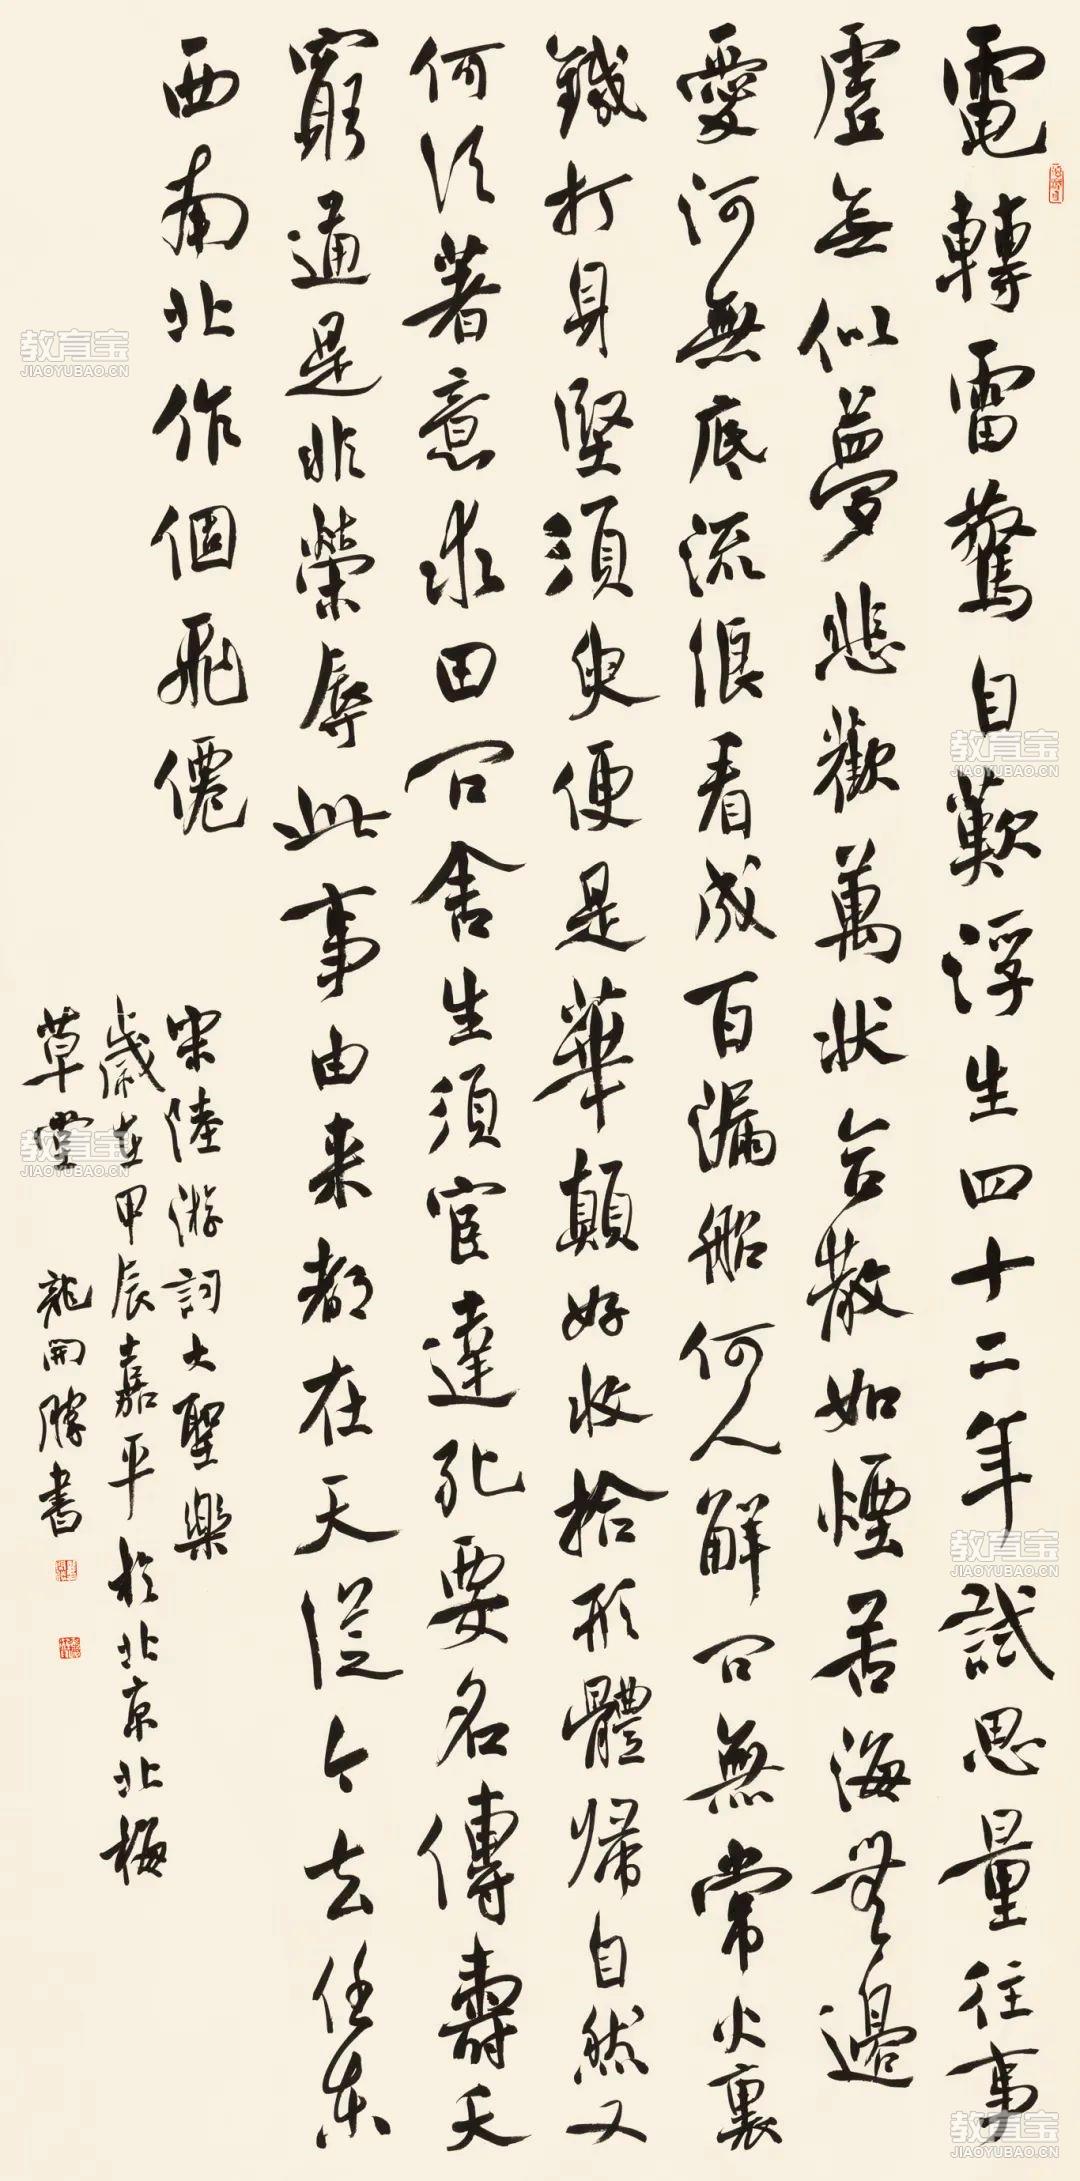 電轉雷驚自歎浮生四十二年試思量往事
虛無似夢悲歡萬狀合散如煙苦海無邊
愛河無底流浪看成百漏船何人解問無常火裏
鐵打身堅須臾便是華顛好收拾形體歸自然又
何須著意求田問舍生須宦達死要名傳壽夭
窮通是非榮辱此事由来都在天從今去任東
西南北作個飛僊
宋陸游詞大聖樂
歲在甲辰嘉平於北京北梅
草堂 龍開勝書
教育宝
JIAOYUBAO.CN
教育宝
JIAOYUBAO.CN
教育宝
JIAOYUBAO.CN
教育宝
JIAOYUBAO.CN
教育宝
JIAOYUBAO.CN